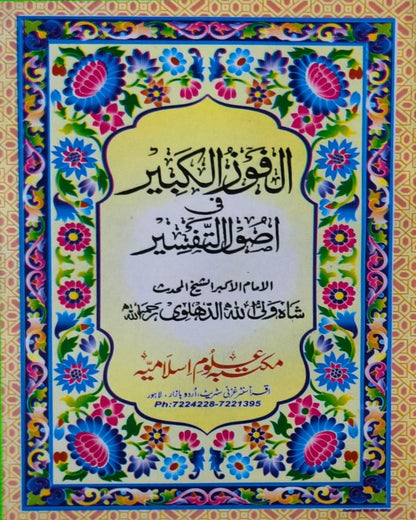 الفوز الكبير
فى
اصول التفسير
الامام الاكبر الشيخ المحدث
شاه ولى الله الدهلوى رحمه الله
مکتبہ علوم اسلامیہ
اقراسنٹر غزنی سٹریٹ، اُردو بازار، لاہور
Ph:7224228-7221395